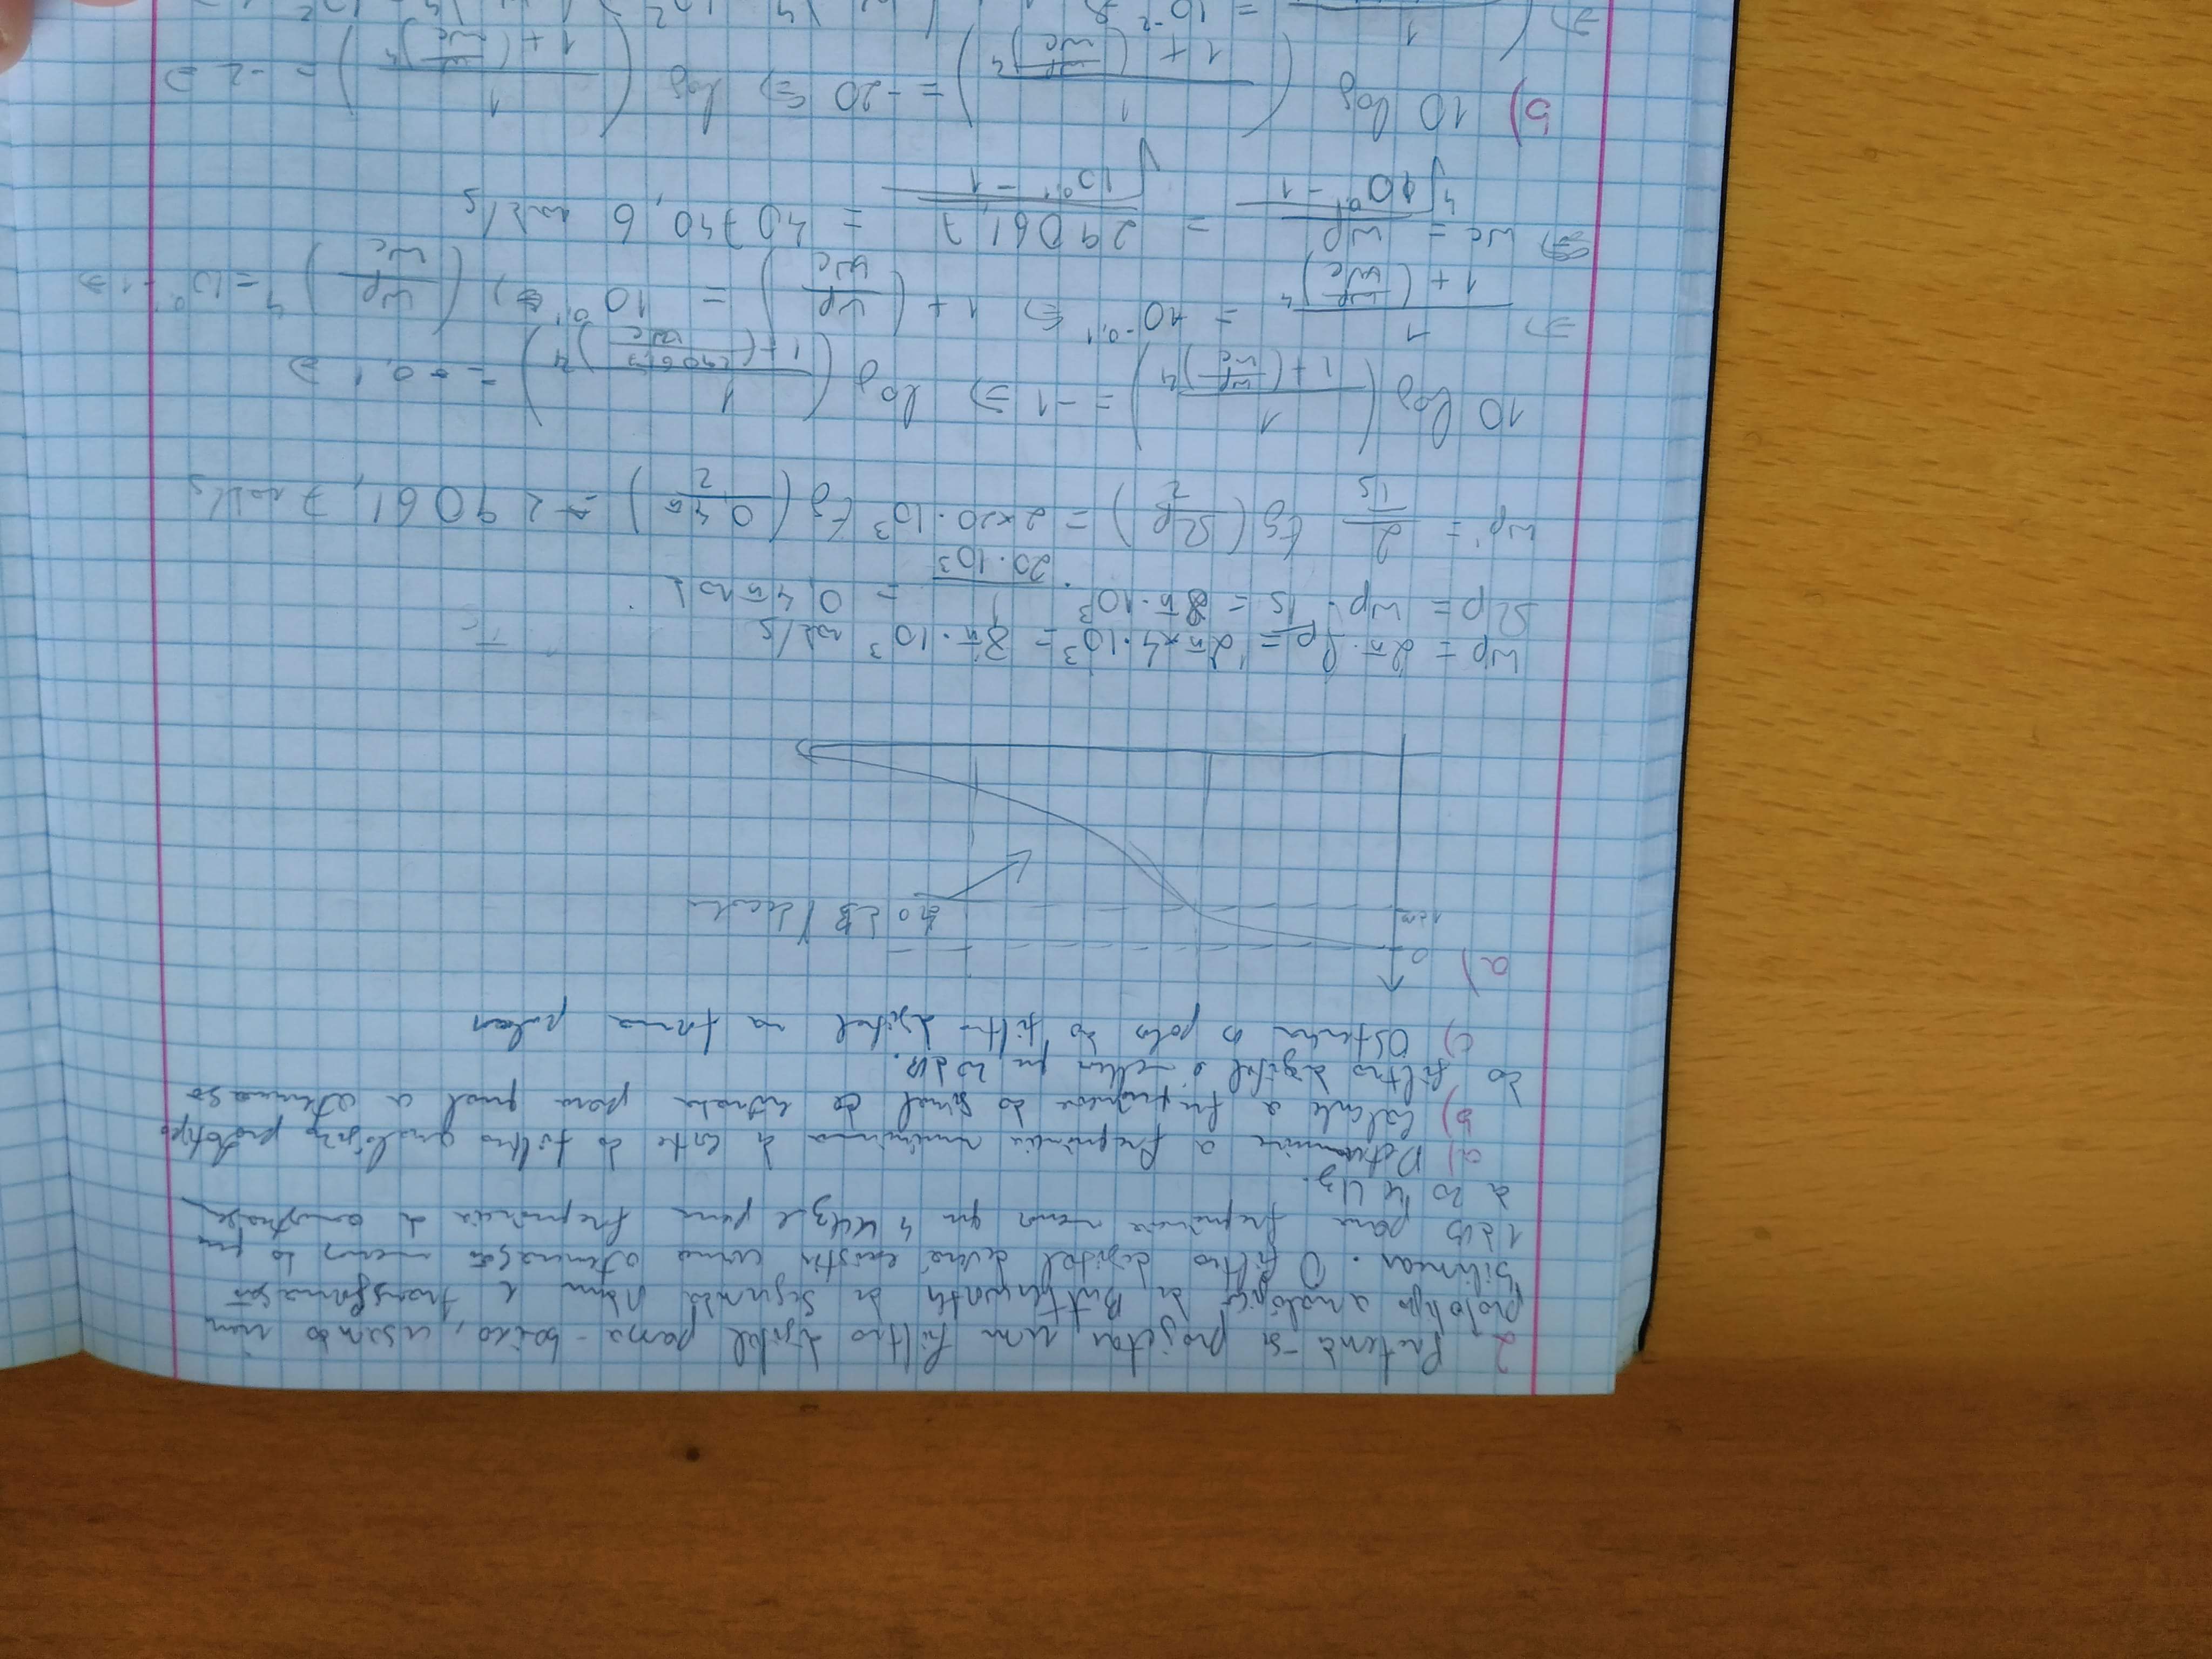 2 Pretend-se projetar um filtro digital passa-baixo, usando um
protótipo analógico de Butterworth de segunda ordem e transformação
bilinear. O filtro digital deverá existir uma atenuação menos do que
1 dB para frequência menor que 4 kHz e para frequência de amostragem
de 20 kHz.
a) Determine a frequência mínima de corte do filtro analógico protótipo
b) Calcule a frequência do sinal de entrada para qual a atenuação
do filtro digital é melhor que 20 dB.
c) Obtenha os polos do filtro digital na forma polar
a)
0
1 dB
40 dB/decada
wp = 2π·fp = 2π×4·10³ = 8π·10³ rad/s
Ωp = wp·Ts = 8π·10³ · 1/(20·10³) = 0,4π rad
wp' = 2/Ts tg(Ωp/2) = 2×20·10³ tg(0,4π/2) = 29061,7 rad/s
10 log(1/(1+(wp/wc)^4)) = -1 ⇒ log(1/(1+(29061,7/wc)^4)) = -0,1 ⇒
⇒ 1/(1+(wp/wc)^4) = 10^-0,1 ⇔ 1+(wp/wc) = 10^0,1 ⇒ (wp/wc)^4 = 10^0,1 -1 ⇒
⇒ wc = wp/⁴√(10^0,1 -1) = 29061,7/√(10^0,1 -1) = 40740,6 rad/s
b) 10 log(1/(1+(wp/wc)^4)) = -20 ⇔ log(1/(1+(wp/wc)^4)) = -2 ⇒
⇒ (1 = 10^-2